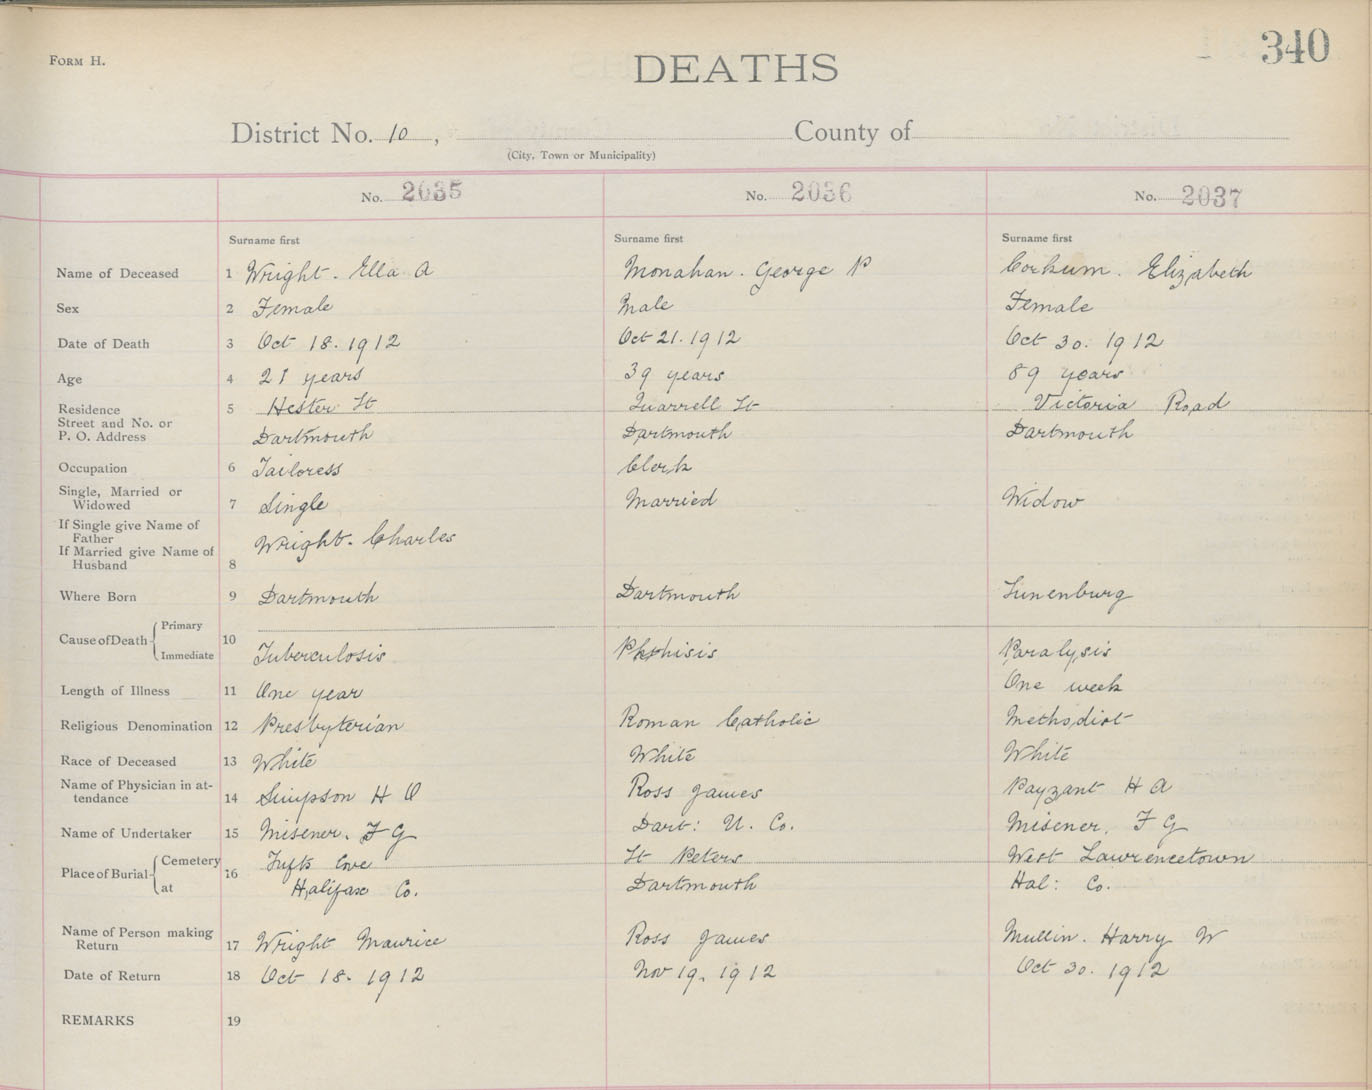 FORM H.
340
DEATHS
District No. 10, County of
(City, Town or Municipality)
No. 2035 No. 2036 No. 2037
Surname first Surname first Surname first
Name of Deceased 1 Wright. Ella A Monahan. George P Corkum. Elizabeth
Sex 2 Female Male Female
Date of Death 3 Oct 18. 1912 Oct 21. 1912 Oct 30. 1912
Age 4 21 years 39 years 89 years
Residence 5 Hester St Quarrell St Victoria Road
Street and No. or
P. O. Address Dartmouth Dartmouth Dartmouth
Occupation 6 Tailoress Clerk
Single, Married or
Widowed 7 Single Married Widow
If Single give Name of
Father Wright. Charles
If Married give Name of
Husband 8
Where Born 9 Dartmouth Dartmouth Lunenburg
Cause of Death Primary
10
Immediate Tuberculosis Phthisis Paralysis
Length of Illness 11 One year One week
Religious Denomination 12 Presbyterian Roman Catholic Methodist
Race of Deceased 13 White White White
Name of Physician in at-
tendance 14 Simpson H O Ross James Payzant H A
Name of Undertaker 15 Misener. F G Dart: U. Co. Misener. F G
Place of Burial Cemetery Tufts Cove St Peters West Lawrencetown
16 at Halifax Co. Dartmouth Hal: Co.
Name of Person making
Return 17 Wright Maurice Ross James Mullin. Harry W
Date of Return 18 Oct 18. 1912 Nov 19. 1912 Oct 30. 1912
REMARKS 19